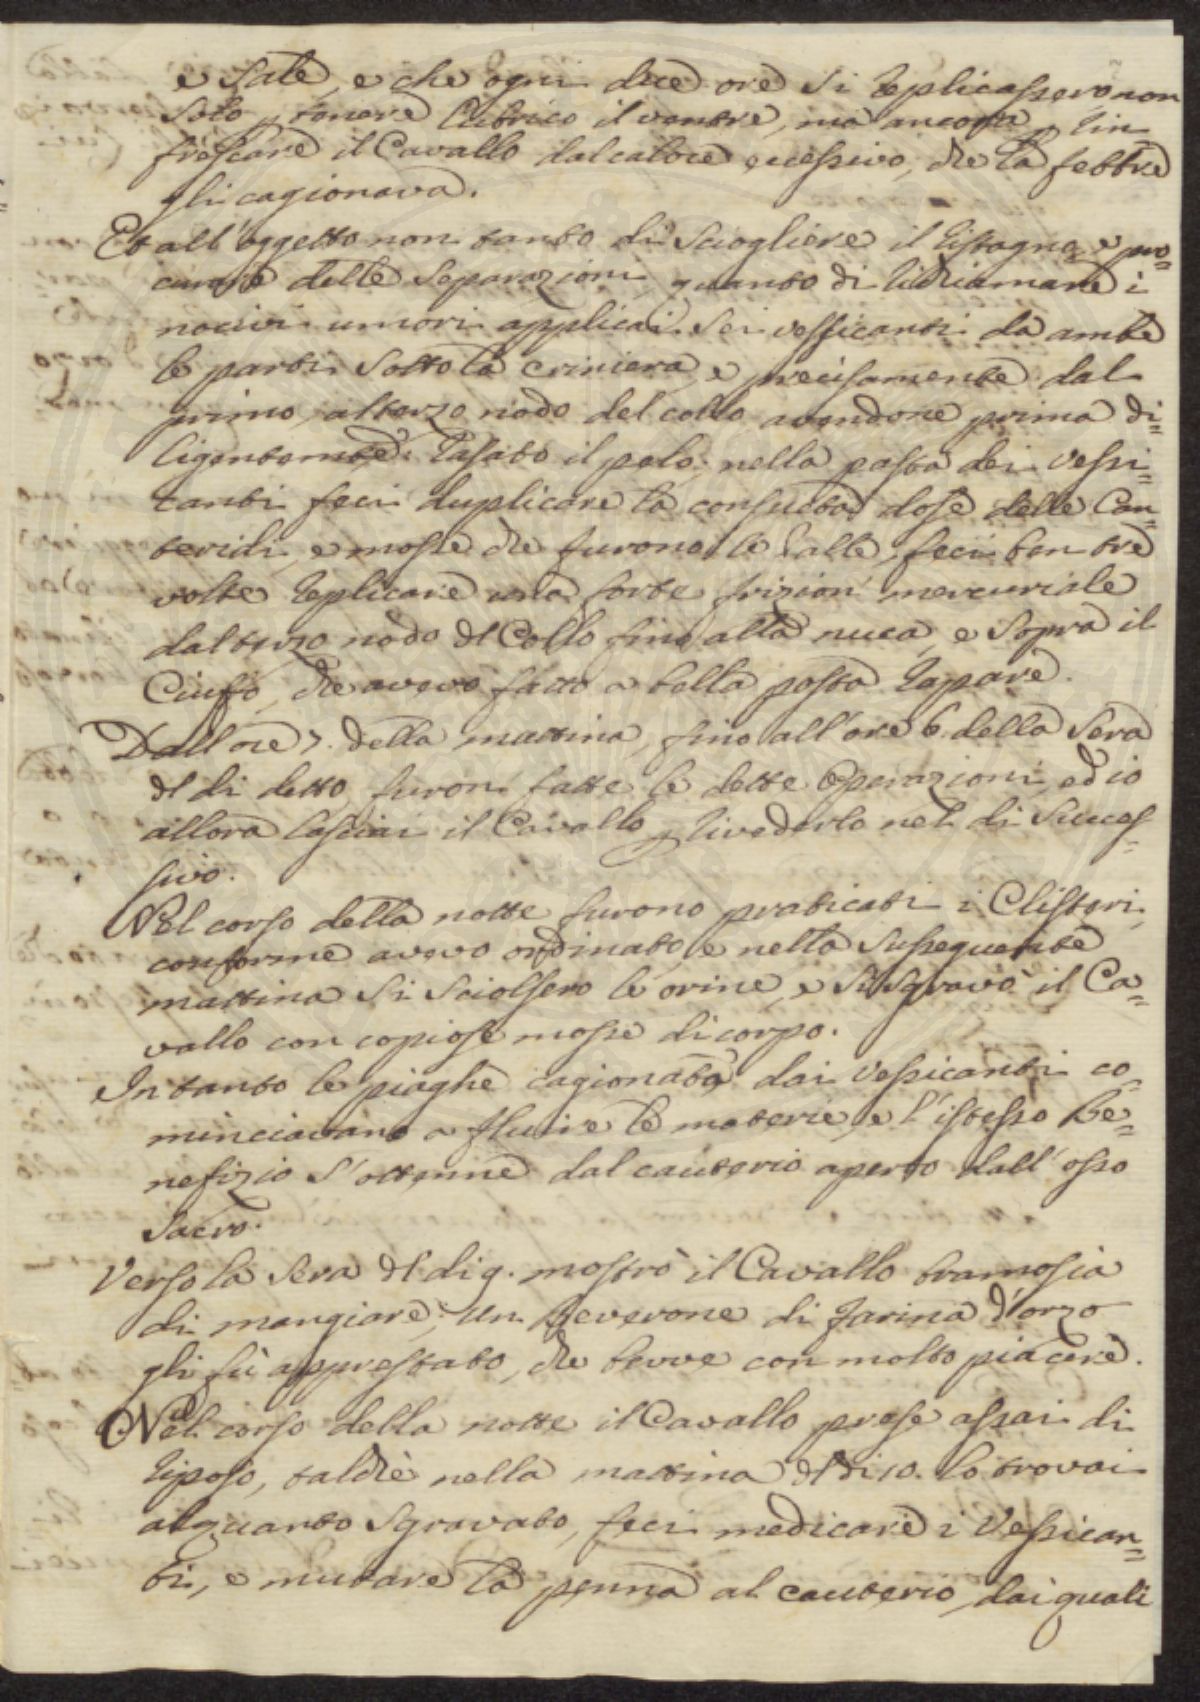 e Sale, e che ogni due ore si replicassero non
solo p tenere lubrico il ventre, ma ancora p rin=
frescare il Cavallo dal calore eccessivo, che la febbre
gli cagionava.
Et all'oggetto non tanto di sciogliere il ristagno e pro=
curare delle separazioni, quanto di richiamare i
nocivi umori applicai sei vessicanti da ambe
le parti sotto la criniera, e precisamente dal
primo, al terzo nodo del collo avendone prima di=
ligentemte rasato il pelo; nella pasta dei Vessi=
canti feci duplicare la consueta dose delle Can=
teridi, e mosse che furono le balle, feci ben tre
volte replicare una forte frizion mercuriale
dal terzo nodo del Collo fino alla nuca, e sopra il
Ciuffo, che avevo fatto a bella posta rapare.
Dall'ore 7. della mattina, fino all'ore 6. della Sera
del di detto furon fatte le dette operazioni, ed io
allora lasciai il Cavallo p rivederlo nel di succes=
sivo.
Nel corso della notte furono praticati i Clisteri,
conforme avevo ordinato, e nella susseguente
mattina si sciolsero le orine, e si sgravò il Ca=
vallo con copiose mosse di corpo.
In tanto le piaghe cagionate dai Vessicanti co=
minciavano a fluire le materie, e l'istesso Be=
nefizio s'ottenne dal cauterio aperto dall'osso
Sacro.
Verso la Sera del di 9. mostrò il Cavallo bramosia
di mangiare; un Beverone di farina d'orzo
gli fù apprestato, che bevve con molto piacere.
Nel corso della notte il Cavallo prese assai di
riposo, talchè nella mattina del di 10. lo trovai
alquanto sgravato, feci medicare i Vessican=
ti, e mutare la penna al cauterio, dai quali